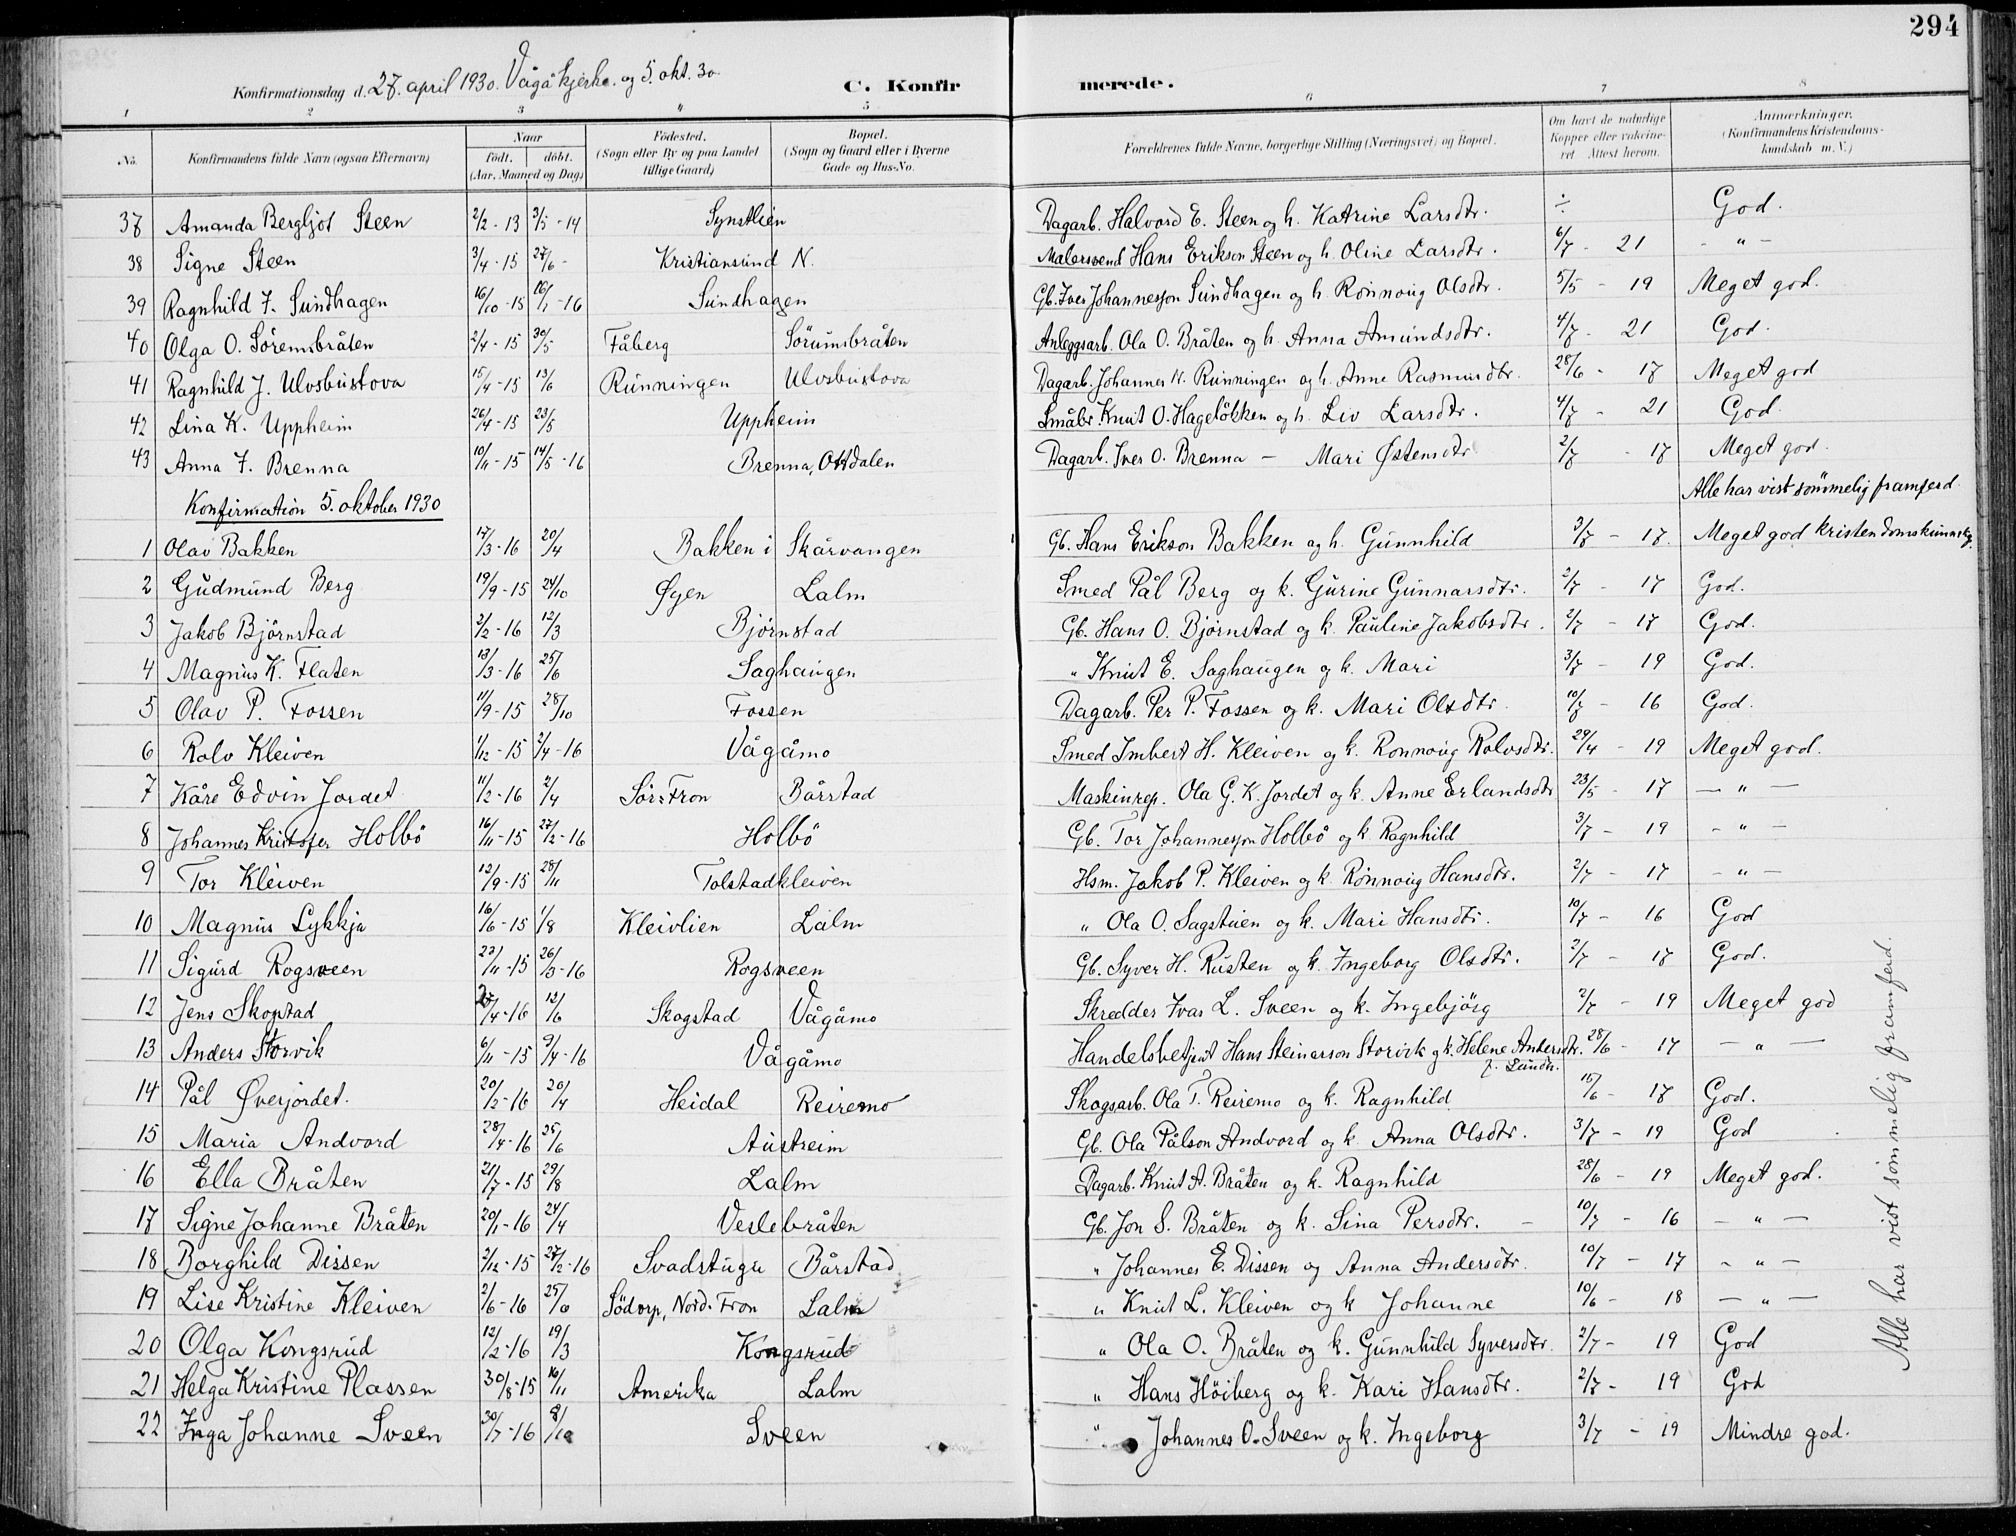 294
Konfirmationsdag d. 27. april 1930. Vågå kjerke. og 5. okt. 30.
C. Konfirmerede.
1 2 3 " 5 6 7 8
No. Konfirmandens fulde Navn (ogsaa Efternavn) Naar födt. döbt. (Aar, Maaned og Dag) Födested. (Sogn eller By og paa Landet tillige Gaard) Bopæl. (Sogn og Gaard eller i Byerne Gade og Hus-No. Forældrenes fulde Navne, borgerlige Stilling (Næringsvei) og Bopæl. Om havt de naturlige Kopper eller vakcineret. Attest herom. Anmærkninger. (Konfirmandens Kristendomskundskab m. V.)
37 Amanda Bergljot Steen 2/2-13 3/5-14 Synstlien Dagarb. Halvord E. Steen og h. Katrine Larsdtr. ÷ God.
38 Signe Steen 3/4-15 27/6- Kristiansund N. Malersvend Hans Erikson Steen og h. Oline Larsdtr. 6/7 - 21 - " -
39 Ragnhild I. Sundhagen 16/10-15 16/1-16 Sundhagen Gb. Iver Johannesson Sundhagen og h. Rönnoug Olsdtr. 5/5 - 19 Meget god.
40 Olga O. Söremsbråten 2/4-15 30/5 Fåberg Sörumsbråten Anleggsarb. Ola O. Bråten og h. Anna Amundsdtr. 4/7 - 21 God.
41 Ragnhild J. Ulvsbustova 15/4-15 13/6 Runningen Ulvsbustova Dagarb. Johannes N. Runningen og h. Anne Rasmusdtr. 28/6 - 17 Meget god
42 Lina K. Uppheim 26/4-15 23/5 Uppheim Småbr. Knut O. Hagelökken og h. Liv Larsdtr. 4/7 - 21 God.
43 Anna I. Brenna 10/11-15 14/5-16 Brenna, Ottdalen Dagarb. Iver O. Brenna - Mari Østensdtr 2/7 - 17 Meget god.
Konfirmation 5. oktober 1930 Alle har vist sömmelig framferd.
1 Olav Bakken 17/3-16 20/4 Bakken i Skårvangen Gb. Hans Erikson Bakken og h. Gunnhild 3/7 - 17. Meget god kristendomskunnskp.
2 Gudmund Berg 19/9-15 24/10 Øyen Lalm Smed Pål Berg og k. Gurine Gunnarsdtr. 2/7 - 17 God.
3 Jakob Björnstad 2/2-16 12/3 Björnstad Gb. Hans O. Björnstad og k. Pauline Jakobsdtr. 2/7 - 17 God.
4 Magnus K. Flaten 13/3-16 25/6 Saghaugen " Knut E. Saghaugen og k. Mari 3/7 - 19 God.
5 Olav P. Fossen 11/9-15 28/10 Fossen Dagarb. Per P. Fossen og k. Mari Olsdtr. 10/7 - 16 God.
6 Rolv Kleiven 1/12-15 2/4-16 Vågåmo Smed Imbert H. Kleiven og k. Ronnoug Rolvsdtr. 29/4 - 19 Meget god.
7 Kåre Edvin Jordet 11/2-16 2/4 Sör-Fron Bårstad Maskinrep. Ola G. K. Jordet og k. Anne Erlandsdtr 23/5 - 17 - " -
8 Johannes Kristofer Holbö 16/11-15 27/2-16 Holbö Gb. Tor Johannesson Holbö og k. Ragnhild 3/7 - 19 - " -
9 Tor Kleiven 12/9-15 28/11 Tolstadkleiven Hsm. Jakob P. Kleiven og k. Rönnoug Hansdtr. 2/7 - 17 - " -
10 Magnus Lykkja 16/6-15 1/8 Kleivlien Lalm " Ola O. Sagstuen og k. Mari Hansdtr. 10/7 - 16 God
11 Sigurd Rogsveen 23/11-15 26/3-16 Rogsveen Gb. Syver H. Rusten og k. Ingeborg Olsdtr. 2/7 - 17 God.
12 Jens Skogstad 27/4-16 12/6 Skogstad Vågåmo Skredder Ivar L. Sveen og k. Ingebjörg 2/7 - 19 Meget god
13 Anders Storvik 6/11-15 9/4-16 Vågåmo Handelsbetjent Hans Steinarson Storvik og k. Helene Andersdtr. f. Lundh. 28/6 - 17 - " -
14 Pål Øverjordet. 20/2-16 20/4 Heidal Reiremo Skogsarb. Ola T. Reiremo og k. Ragnhild 15/6 - 17 God.
15 Maria Andvord 28/4-16 25/6 Austreim Gb. Ola Pålson Andvord og k. Anna Olsdtr. 3/7 - 19 God
16 Ella Bråten 21/7-15 29/8 Lalm Dagarb. Knut A. Bråten og k. Ragnhild 28/6 - 19 Meget god.
17 Signe Johanne Bråten 20/1-16 24/4 Veslebråten Gb. Jon S. Bråten og k. Sina Persdtr. - 10/7 - 16 - " -
18 Borghild Dissen 2/12-15 27/2-16 Svadstugu Bårstad " Johannes E. Dissen og Anna Andersdtr. 10/7 - 17 - " -
19 Lise Kristine Kleiven 2/6-16 25/6 Södorp, Nord-Fron Lalm " Knut L. Kleiven og k Johanne 10/6 - 18 - " -
20 Olga Kongsrud 12/2-16 19/3 Kongsrud " Ola O. Bråten og k. Gunnhild Syversdtr. 2/7 - 19 God
21 Helga Kristine Plassen 30/8-15 16/11 Amerika Lalm " Hans Höiberg og k. Kari Hansdtr. 2/7 - 19 God
22 Inga Johanne Sveen 30/7-16 8/10 Sveen " Johannes O. Sveen og k. Ingeborg 3/7 - 19 Mindre god.
Alle har vist sömmelig framferd.